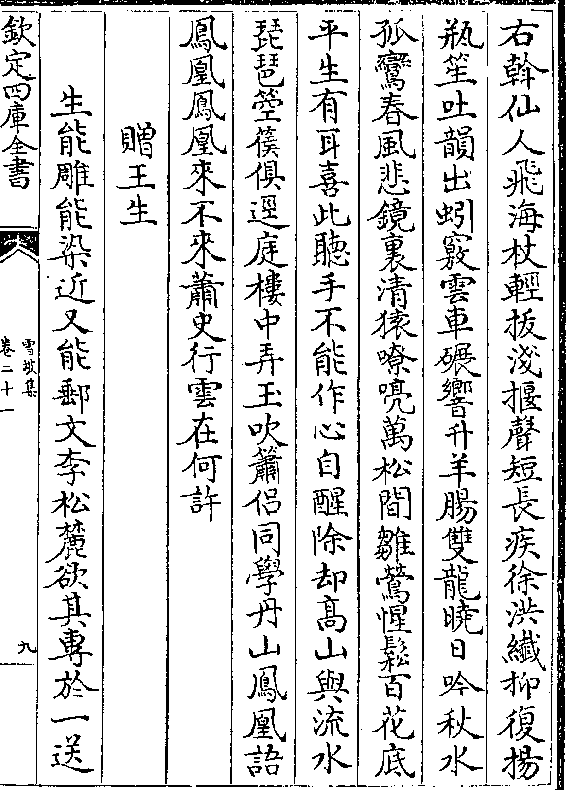 右斡仙人飛海杖輕挨淺擫聲短長疾徐洪纎抑復揚
瓶笙吐韻出蚓竅雲車碾響升羊腸雙龍曉日吟秋水
孤鸞春風悲鏡裏清猿嘹喨萬松間雛鶯惺鬆百花底
平生有耳喜此聽手不能作心自醒除却髙山與流水
琵琶箜篌俱逕庭樓中弄玉吹簫侶同學丹山鳳凰語
鳳凰鳳凰來不來蕭史行雲在何許
贈王生
生能雕能染近又能郵文李松麓欲其專於一送
欽定四庫全書
雪坡集
卷二十一
九